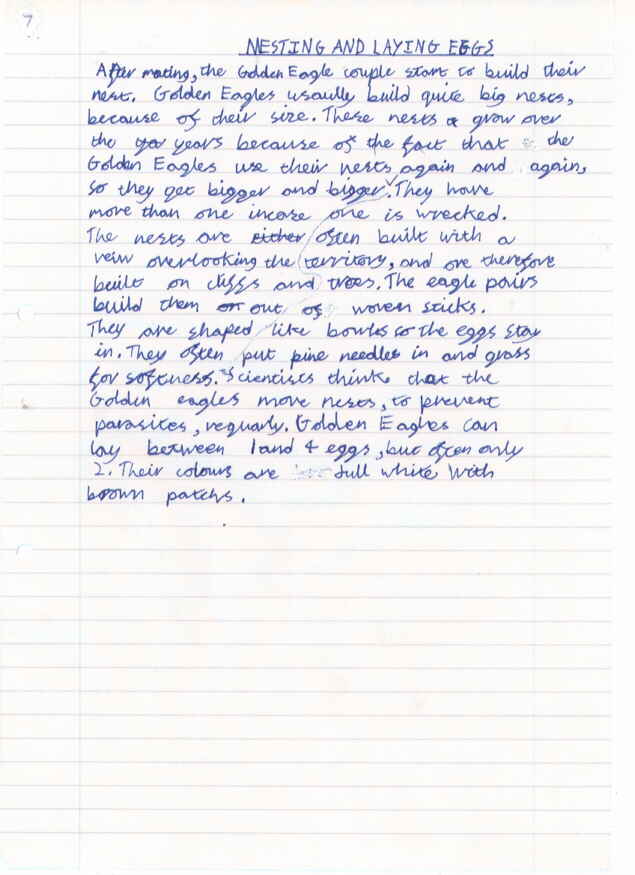 7
NESTING AND LAYING EGGS
After mating, the Golden Eagle couple start to build their
nest. Golden Eagles usaully build quite big nests,
because of their size. These nests grow over
the years because of the fact that the
Golden Eagles use their nests again and again,
so they get bigger and bigger. They have
more than one incase one is wrecked.
The nests are either often built with a
veiw overlooking the territory, and are therefore
built on cliffs and trees. The eagle pairs
build them or out of woven sticks.
They are shaped like bowls so the eggs stay
in. They often put pine needles in and grass
for softness. Scientists think that the
Golden eagles move nests, to prevent
parasites, reguarly. Golden Eagles can
lay between 1 and 4 eggs, but often only
2. Their colours are dull white with
brown patchs.